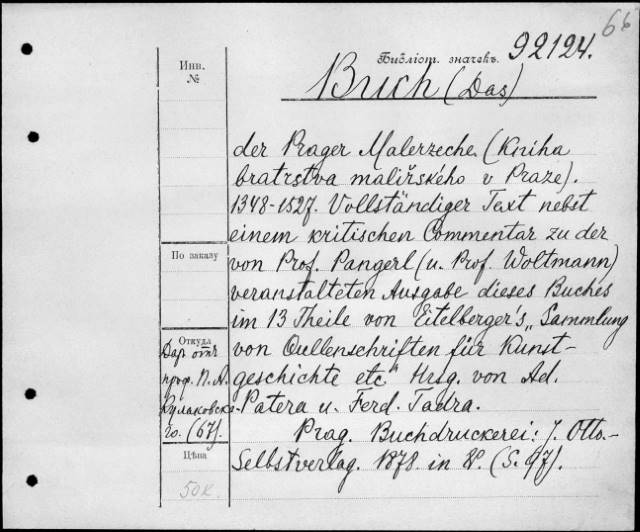 66
Библіот. значекъ. 92124.
Инв.
№
Buch (Das)
der Prager Malerzeche. (Kniha
bratrstva malířského v Praze).
1348-1527. Vollständiger Text nebst
einem kritischen Commentar zu der
По заказу
von Prof. Pangerl (u. Prof. Woltmann)
veranstalteten Ausgabe dieses Buches
im 13 Theile von Eitelberger's „Sammlung
Откуда
Даръ отъ
von Qullenschriften für Kunst-
проф. П. А.
geschichte etc" Hrsg. von Ad.
Кулаковска-
Patera u. Ferd. Tadra.
го. (67).
Prag. Buchdruckerei: J. Otto.-
Цѣна
Selbstverlag. 1878. in 8°. (S. 97).
50к.